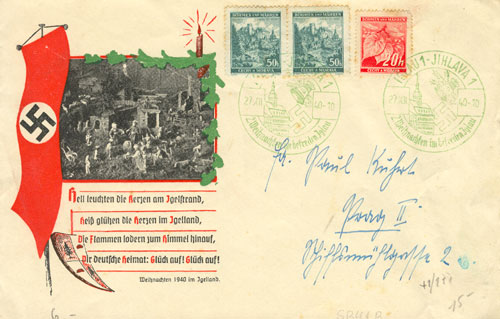 BÖHMEN UND MÄHREN
BÖHMEN UND MÄHREN
50h
50h
20h
ČECHY A MORAVA
ČECHY A MORAVA
ČECHY A MORAVA
1 - JIHLAVA 1
JIHLAVA 1
27.XII.
40-10
27.XII.
40-10
Weihnachten im befreiten Iglau
Weihnachten im befreiten Iglau
Hell leuchten die Kerzen am Igelstrand,
Heiß glühen die Herzen im Igelland,
Die Flammen lodern zum Himmel hinauf,
Dir deutsche Heimat: Glück auf! Glück auf!
Weihnachten 1940 im Igelland.
Paul Kuhrt
Prag II
Schiffsmühlgasse 2
15-
6-